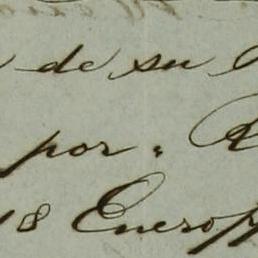 de su
por
18 Enero